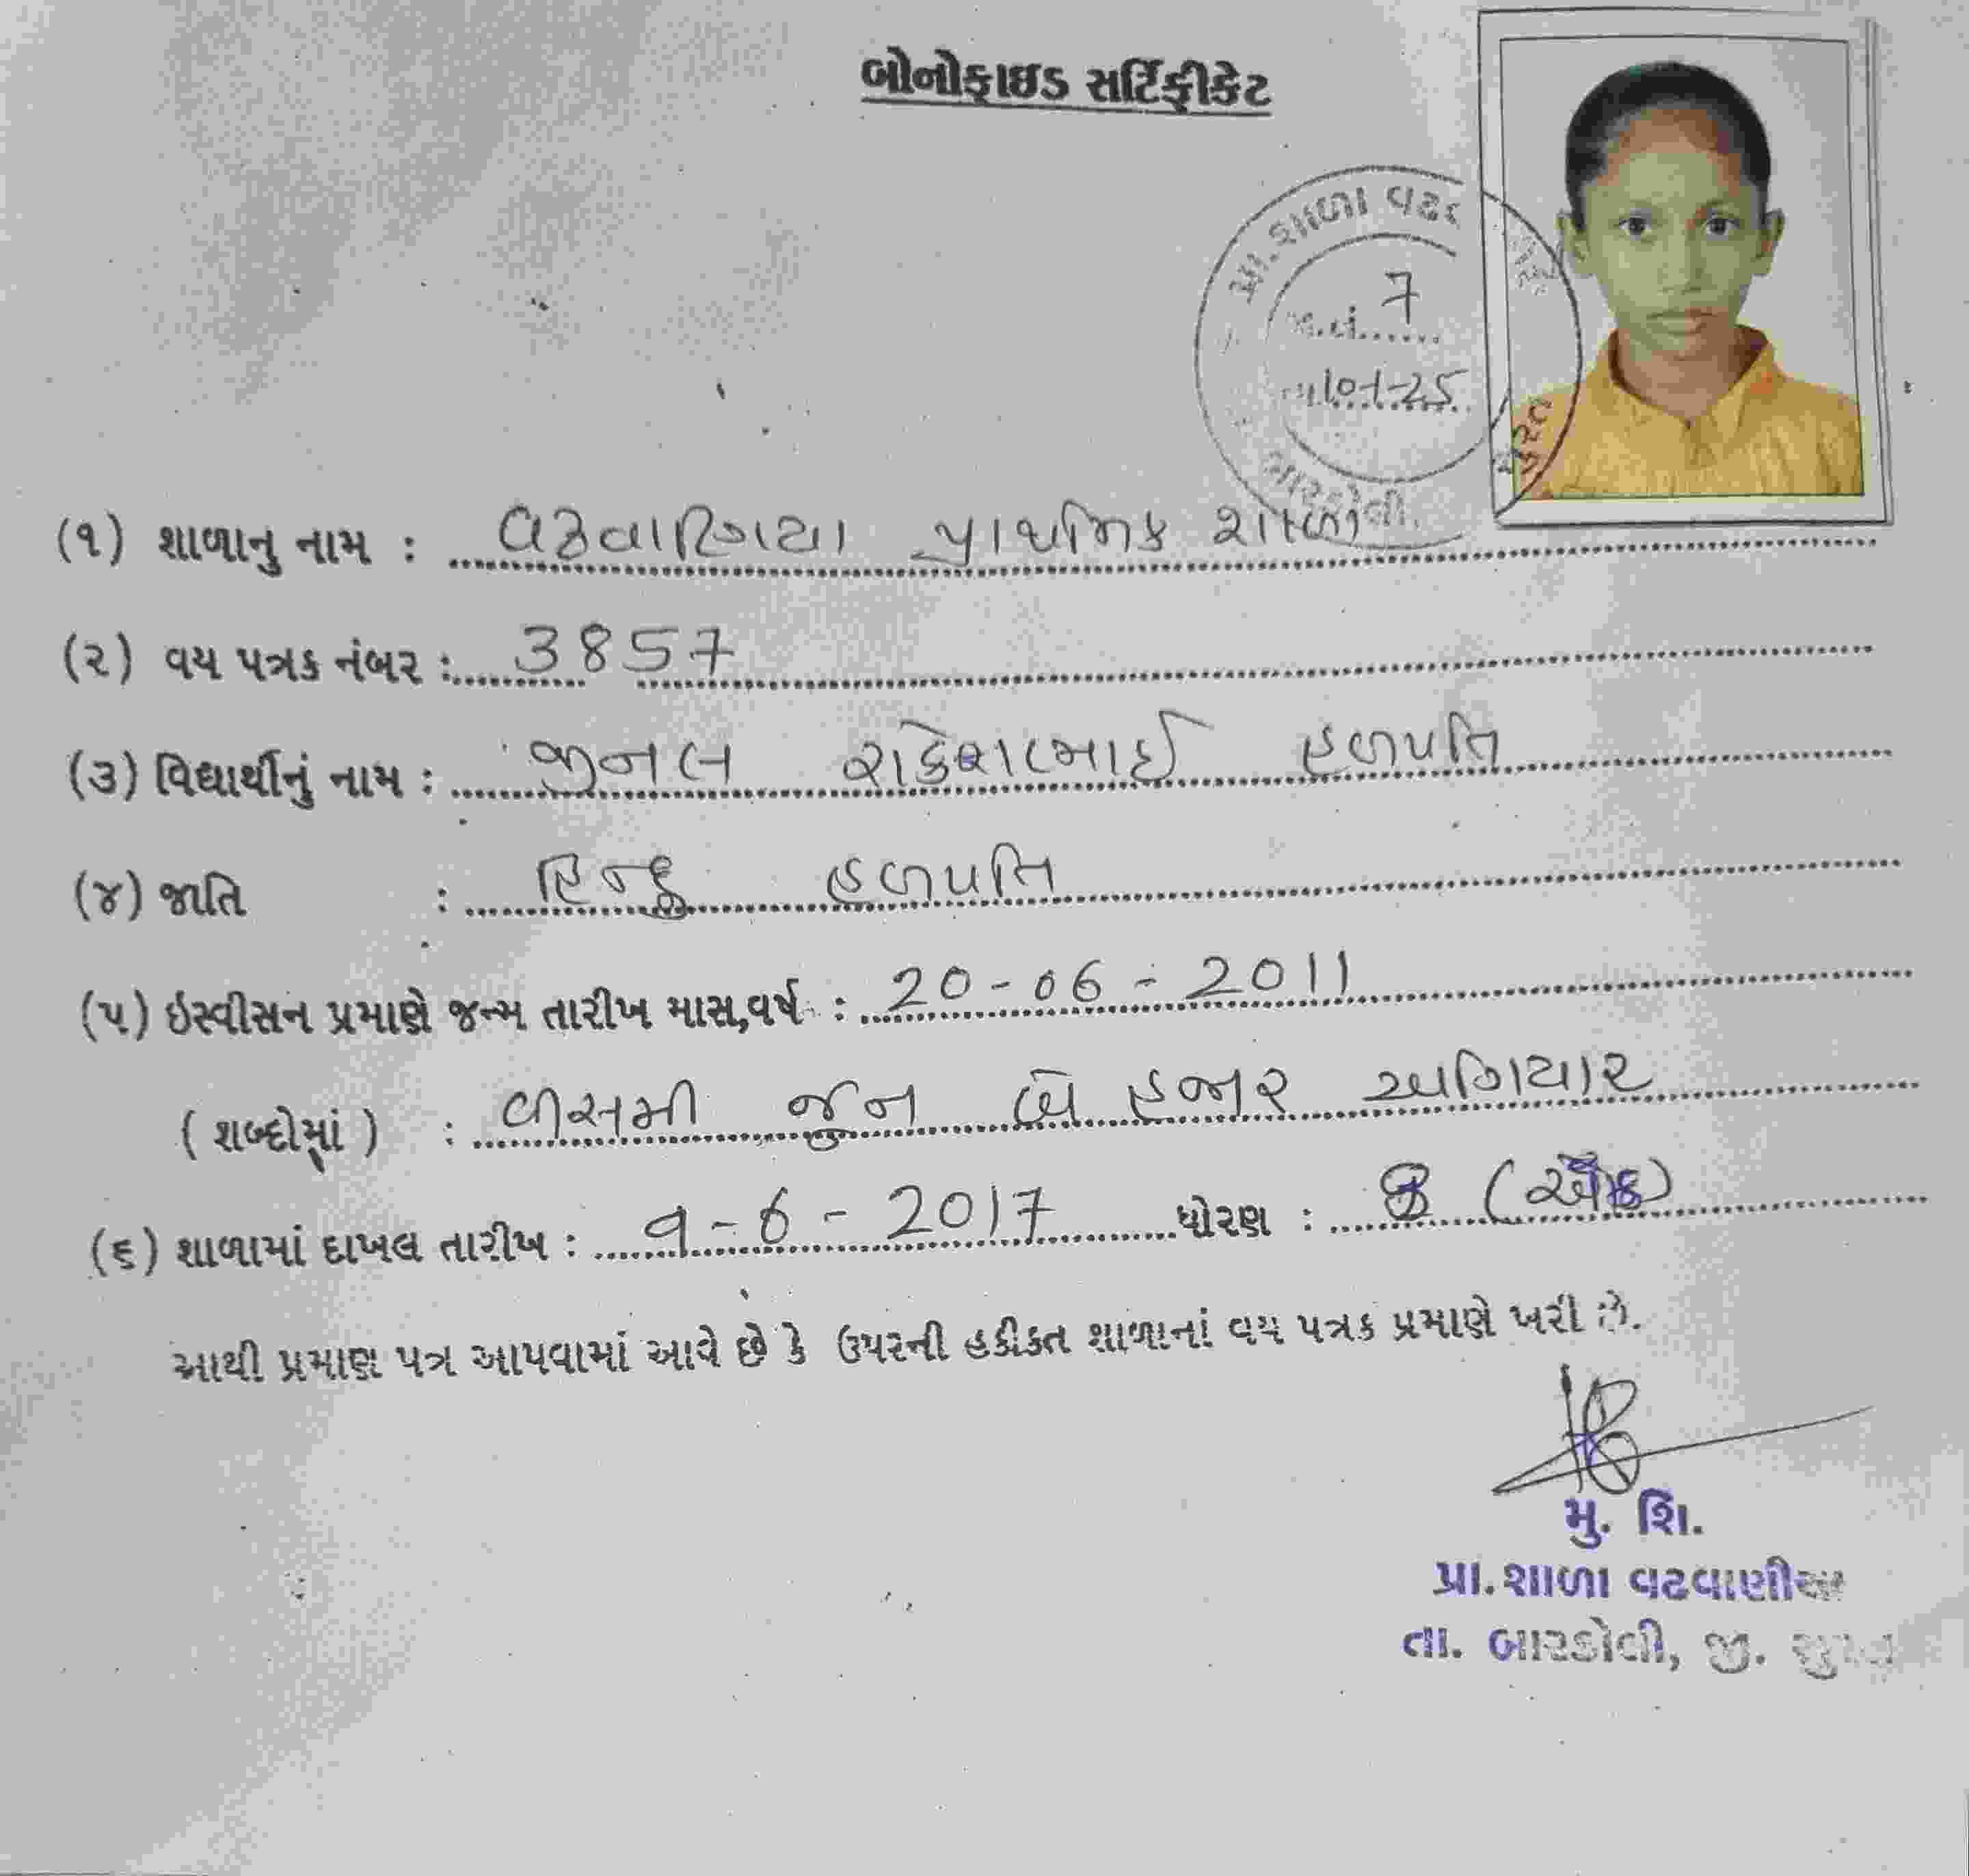 બોનોફાઇડ સર્ટિફીકેટ
પ્રા.શાળા
7
10-1-25
બારડોલી
સુરત
(૧) શાળાનુ નામ : વઢવાણિયા પ્રાથમિક શાળા
(૨) વય પત્રક નંબર : 3857
(૩) વિદ્યાર્થીનું નામ : જીનલ રાકેશભાઈ હળપતિ
(૪) જાતિ : હિન્દુ હળપતિ
(૫) ઇસ્વીસન પ્રમાણે જન્મ તારીખ માસ,વર્ષ : 20-06-2011
(શબ્દોમાં) : વીસમી જુન બે હજાર અગિયાર
(૬) શાળામાં દાખલ તારીખ : ૧-6-2017 ધોરણ :
આથી પ્રમાણ પત્ર આપવામાં આવે છે કે ઉપરની હકીકત શાળાનાં વય પત્રક પ્રમાણે ખરી છે.
મુ. શિ.
પ્રા.શાળા વઢવાણીઆ
તા. બારડોલી, જી. સુરત